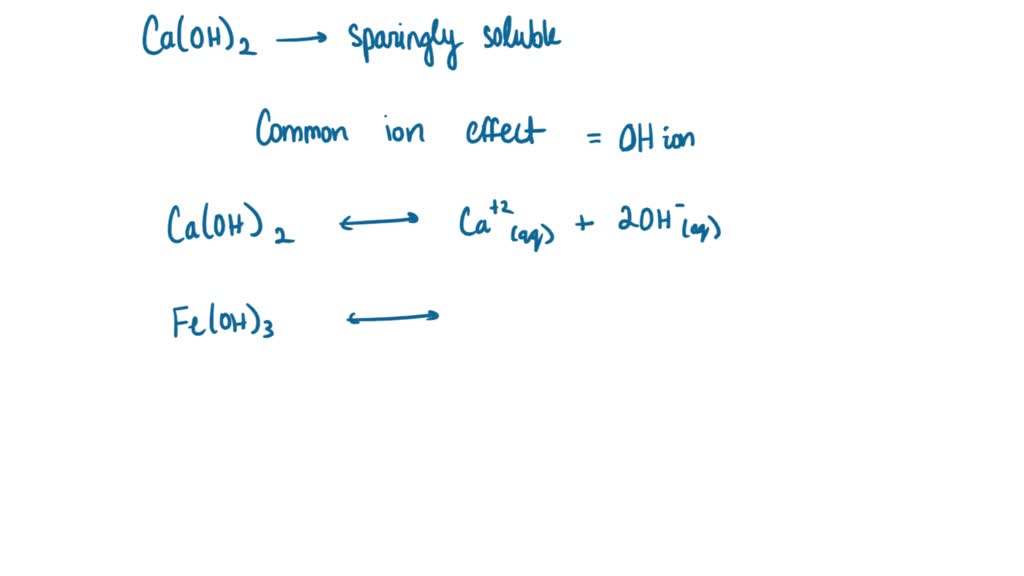 Ca(OH)₂ ⟶ sparingly soluble
Common ion effect = OH ion
Ca(OH)₂ ⟷ Ca⁺²(aq) + 2OH⁻(aq)
Fe(OH)₃ ⟷